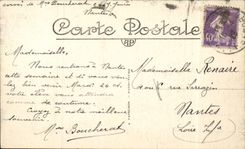 envoi de Mme Boucherat
Nantes
Carte Postale
Mademoiselle,
Nous rentrons à Nantes
cette semaine et si vous
bien venir Mardi 24 ct.
votre élève vous attendra
comme de coutume.
Croyez à notre meilleur
souvenir
Mme Boucherat
Mademoiselle Renaire
6 rue
Nantes
Loire Infre